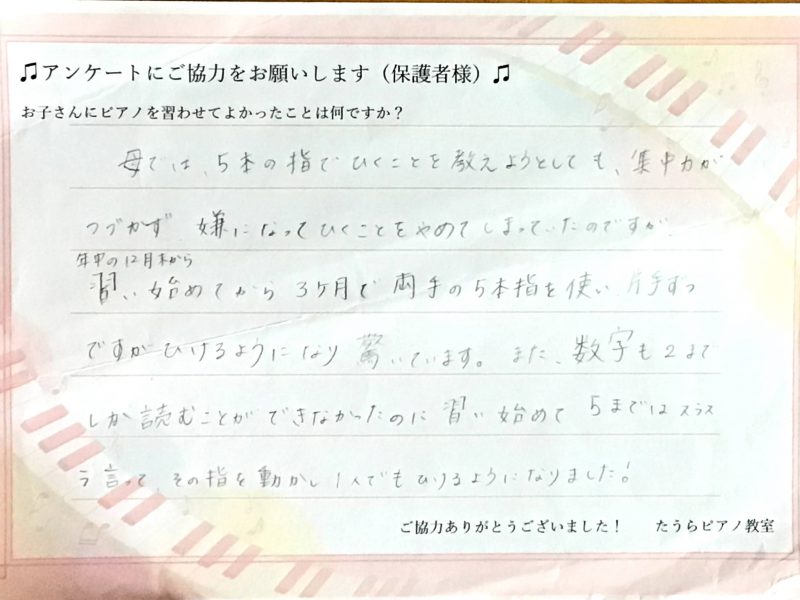 ♫アンケートにご協力をお願いします（保護者様）♫
お子さんにピアノを習わせてよかったことは何ですか？
母では、5本の指でひくことを教えようとしても、集中力が
つづかず 嫌になってひくことをやめてしまっていたのですが、
年中の12月末から
習い始めてから 3ケ月で 両手の5本指を使い、片手ずつ
ですがひけるようになり 驚いています。また、数字も2まで
しか読むことができなかったのに 習い始めて 5まではスラス
ラ言って、その指を動かし1人でもひけるようになりました！
ご協力ありがとうございました！ たうらピアノ教室